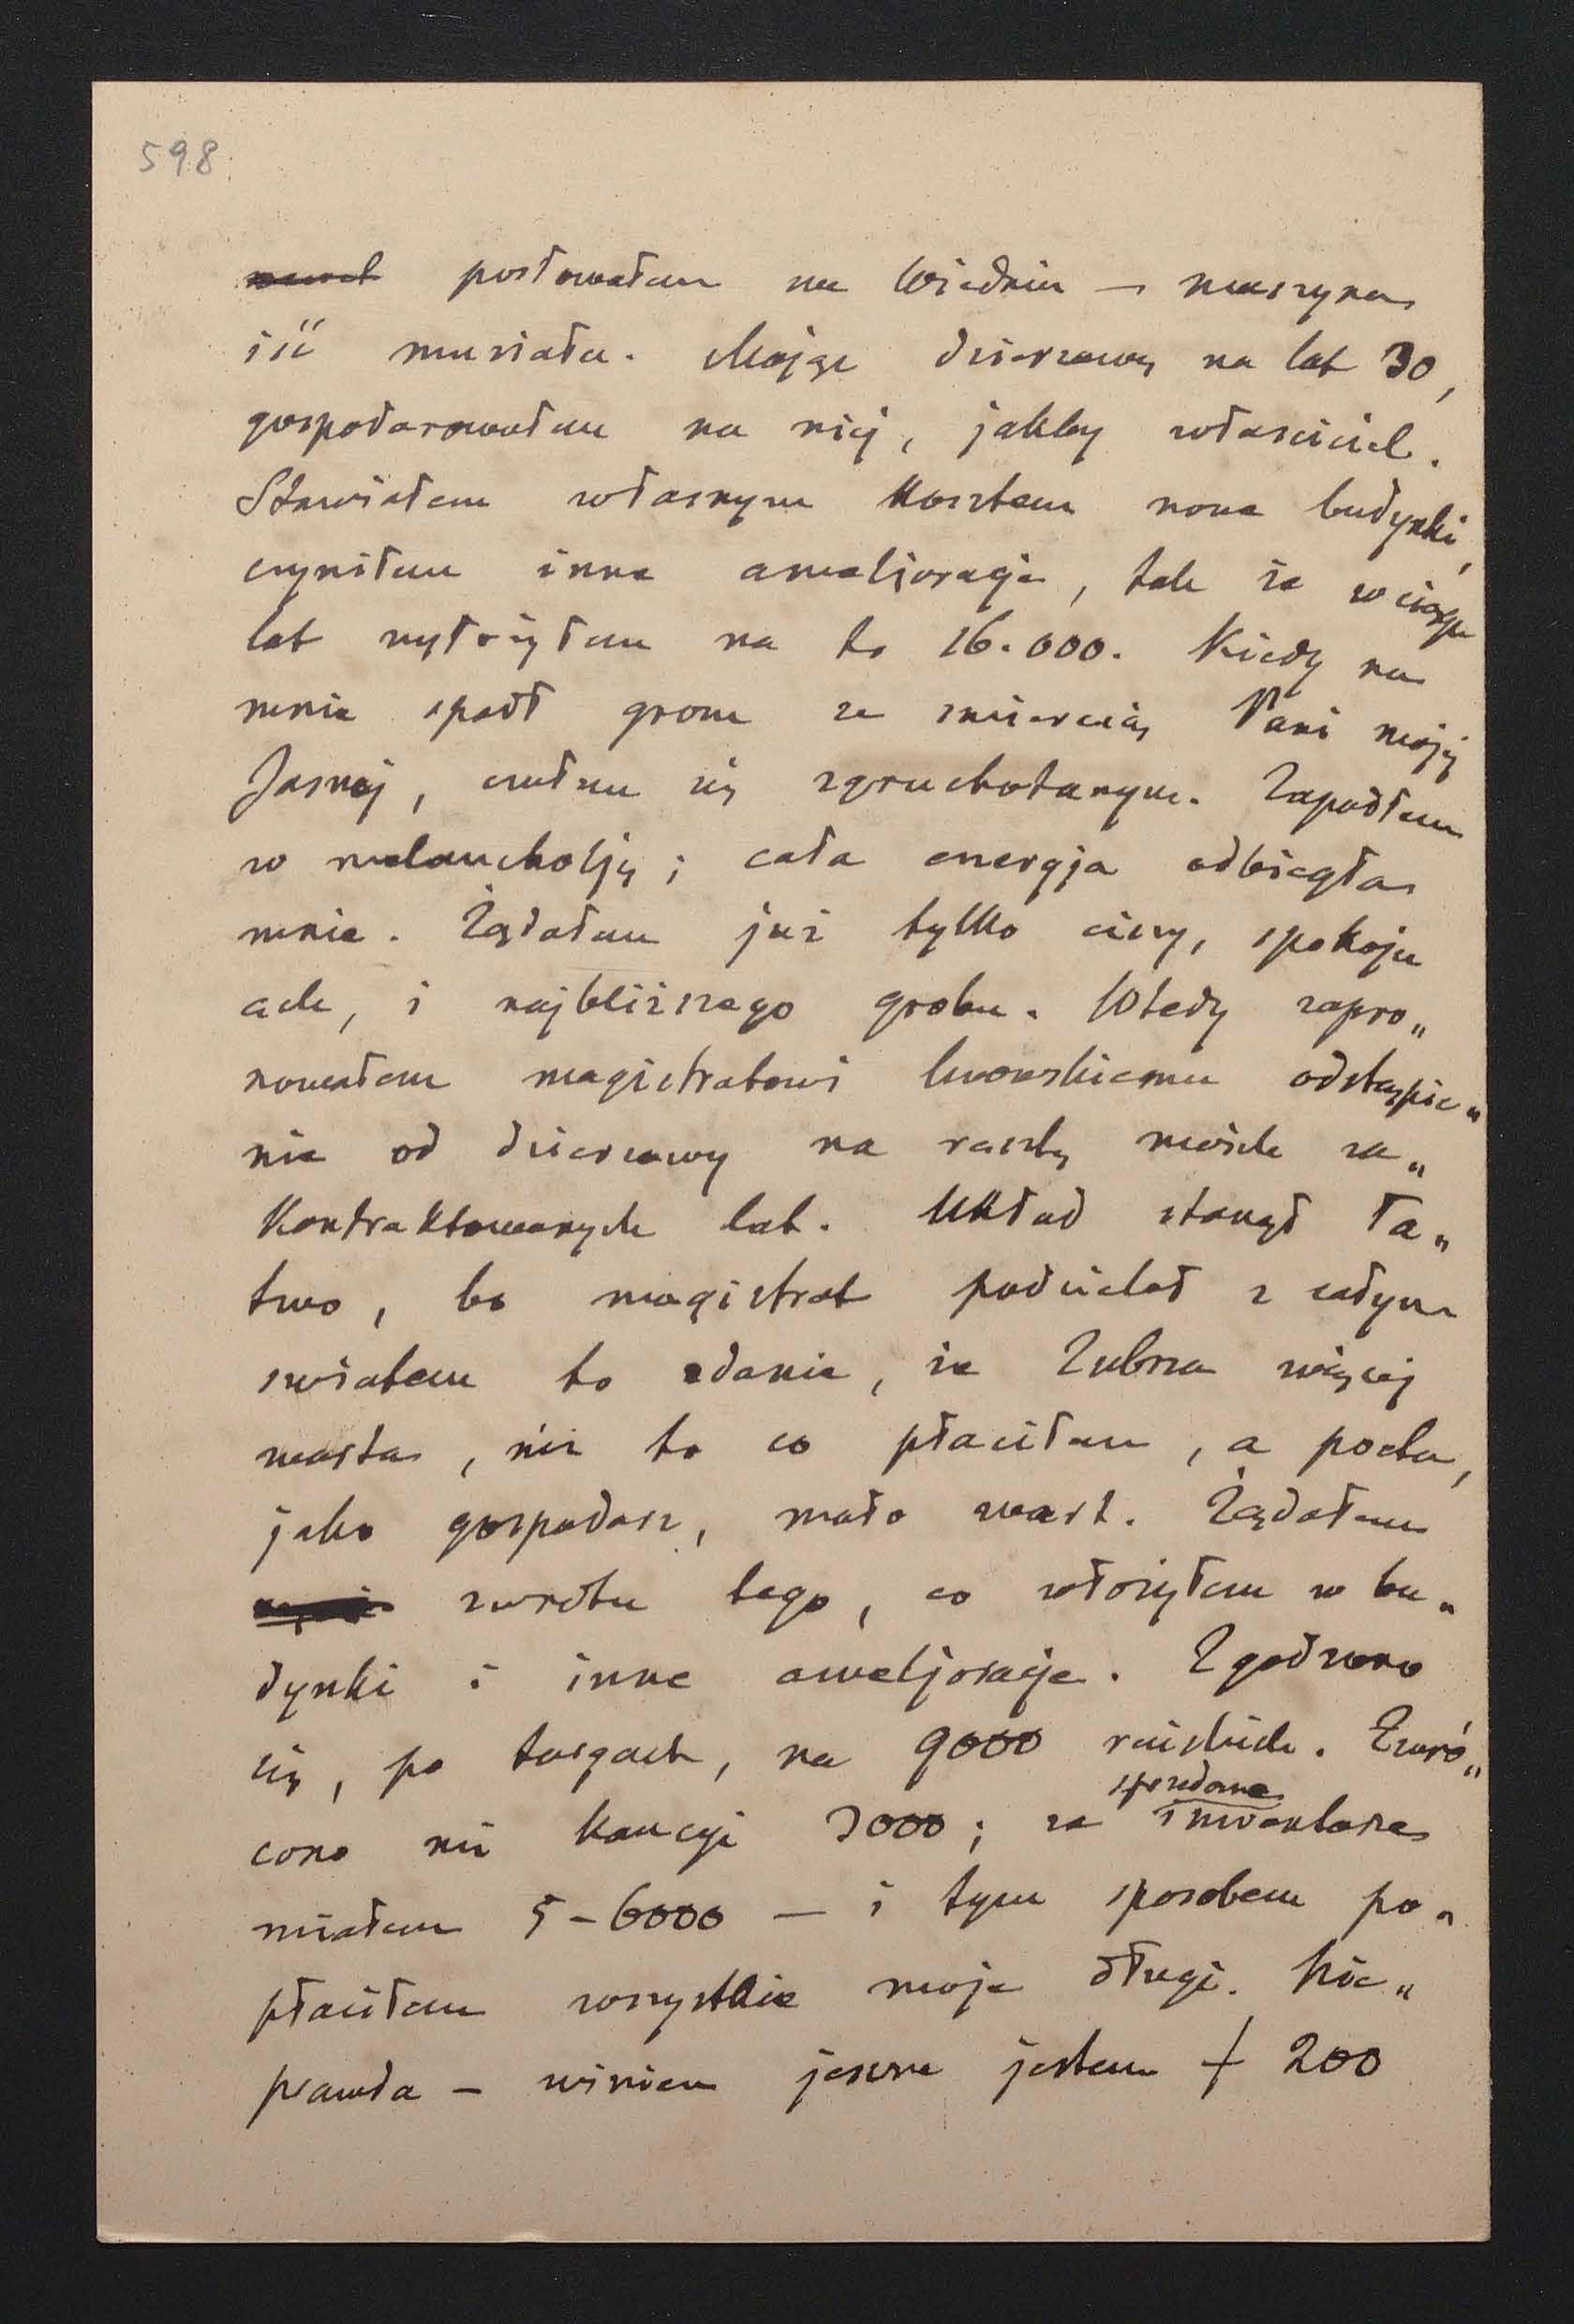 598.
posłowałem na Wiedniu — maszyna
iść musiała. Mając dzierżawę na lat 30,
gospodarowałem na niej, jakby właściciel.
Stawiałem własnym kosztem nowe budynki,
czyniłem inne ameljoracje, tak że w ciągu
lat wyłożyłem na to 16.000. Kiedy na
mnie spadł grom ze śmiercią Pani mojej
Jasnej, czułem się zgruchotanym. Zapadłem
w melancholję; cała energja odbiegła
mnie. Żądałem już tylko ciszy, spokoju
ach, i najbliższego grobu. Wtedy zapro„
nowałem magistratowi lwowskiemu odstąpie„
nie od dzierżawy na resztę moich za„
kontraktowanych lat. Układ stanął ła„
two, bo magistrat podzielał z całym
światem to zdanie, że Zubrza więcej
warta, niż to co płaciłem, a poeta,
jako gospodarz, mało wart. Żądałem
zwrotu tego, co włożyłem w bu„
dynki i inne ameljoracje. Zgodzono
się, po targach, na 9000 reińskich. Zwró„
cono mi kaucyi 3000; za sprzedane inwentarze
miałem 5-6000 — i tym sposobem po„
płaciłem wszystkie moje długi. Nie„
prawda — winien jeszcze jestem f 200